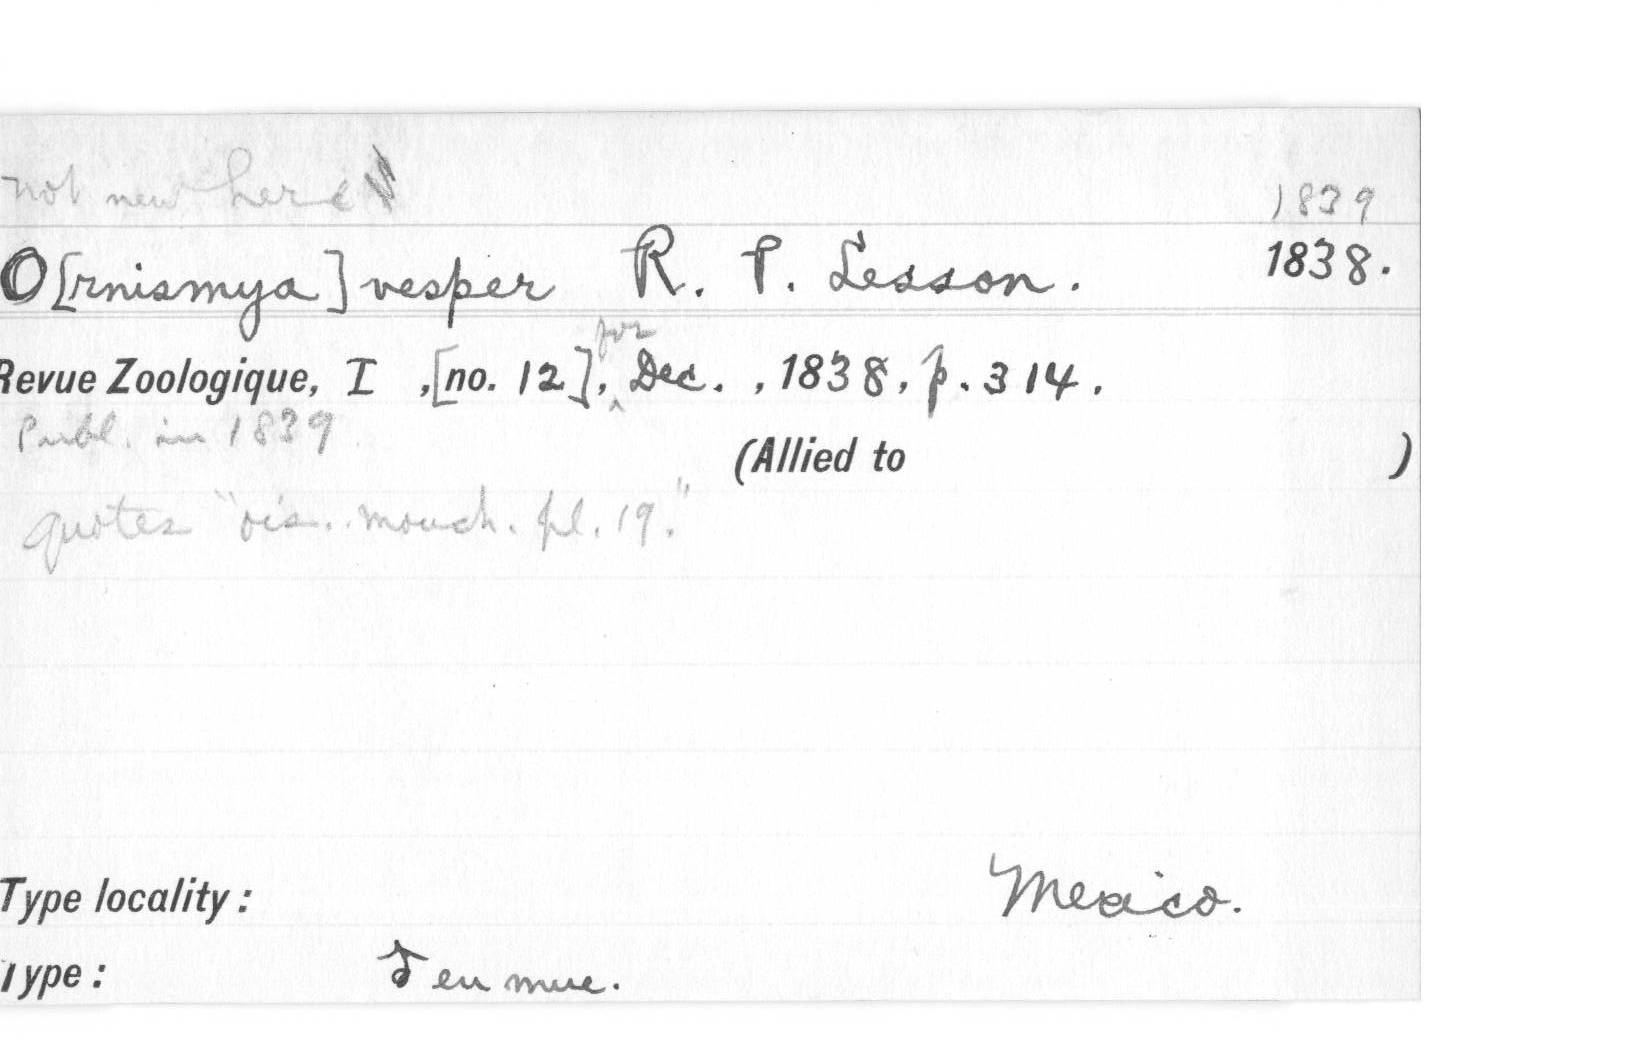 not new here
1839
O[rnismya] vesper R. P. Lesson. 1838.
Revue Zoologique, I ,[no. 12], for Dec. , 1838, p. 314.
Publ. in 1839
(Allied to )
quotes "ois.. mouch. pl. 19."
Type locality: Mexico.
Type: ♂ en mue.